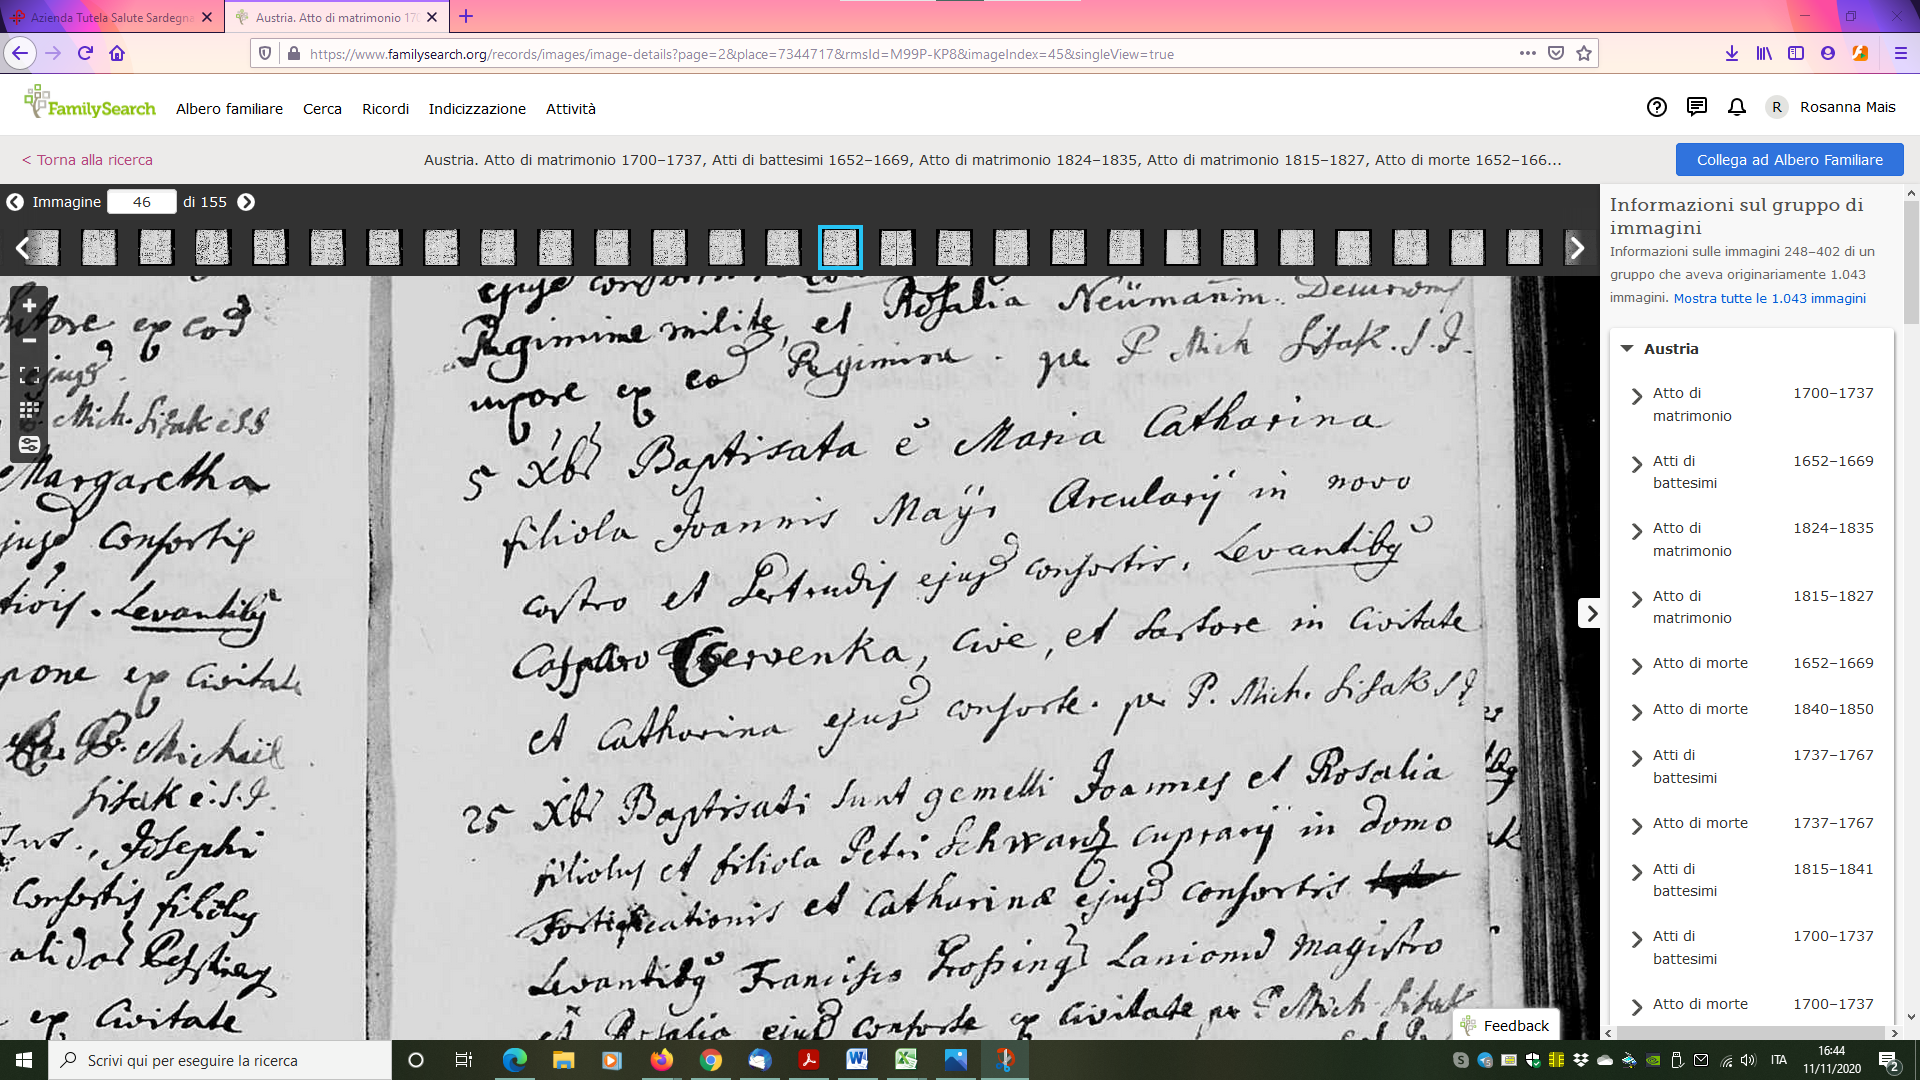 Azienda Tutela Salute Sardegna
Austria. Atto di matrimonio 170
https://www.familysearch.org/records/images/image-details?page=2&place=7344717&rmsId=M99P-KP8&imageIndex=45&singleView=true
FamilySearch
Albero familiare
Cerca
Ricordi
Indicizzazione
Attività
R
Rosanna Mais
< Torna alla ricerca
Austria. Atto di matrimonio 1700–1737, Atti di battesimi 1652–1669, Atto di matrimonio 1824–1835, Atto di matrimonio 1815–1827, Atto di morte 1652–166...
Collega ad Albero Familiare
Immagine 46 di 155
ex eod
ejusd.
Mich. Sisak è S.J.
Margaretha
ejusd Consortis
Levantibq
ex Civitate
P. Michaël
Sisak è. S.J.
Josephi
Consortis filiolus
ex Civitate
Regimine milite, et Rosalia Neümannin.
uxore ex eod Regimine. per P. Mich Sisak. S.J.
5 Xbr Baptisata è Maria Catharina
filiola Joannis Maÿr Arcularÿ in novo
castro et Gertrudis ejusd consortis. Levantibq
Casparo Czervenka, Cive, et Sartore in Civitate
et Catharina ejusd consorte. per P. Mich. Sisak S.J
25 Xbr Baptisati sunt gemelli Joannes et Rosalia
filiolus et filiola Petri Schwartz cuprarÿ in domo
Fortificationis et Catharinæ ejusd consortis
Levantibq Francisco Grossing Lanionū Magistro
et Rosalia ejusd consorte ex civitate per P. Mich. Sisak
Informazioni sul gruppo di
immagini
Informazioni sulle immagini 248–402 di un
gruppo che aveva originariamente 1.043
immagini. Mostra tutte le 1.043 immagini
Austria
Atto di 1700–1737
matrimonio
Atti di 1652–1669
battesimi
Atto di 1824–1835
matrimonio
Atto di 1815–1827
matrimonio
Atto di morte 1652–1669
Atto di morte 1840–1850
Atti di 1737–1767
battesimi
Atto di morte 1737–1767
Atti di 1815–1841
battesimi
Atti di 1700–1737
battesimi
Atto di morte 1700–1737
Feedback
Scrivi qui per eseguire la ricerca
ITA
16:44
11/11/2020
2